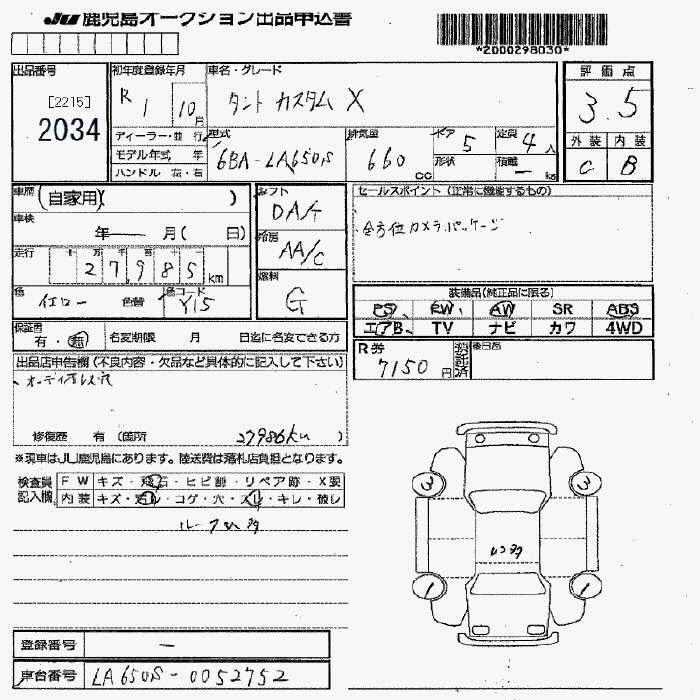 JU 鹿児島オークション出品申込書
*2000298030*
出品番号 初年度登録年月 車名・グレード 評価点
[2215]
2034
R 1 10月 タント カスタム X 3.5
ディーラー・並行 型式 排気量 ドア 5 定員 4人 外装 内装
モデル年式 年 6BA-LA650S 660cc 形状 積載 - kg C B
ハンドル 左・右
車歴 (自家用) シフト セールスポイント (正常に機能するもの)
DA/T
車検 年 月 ( 日) 冷房 全方位カメラパッケージ
走行 十 万 千 百 十 一 AA/C
27,985 km 燃料
色 イエロー 色替 色コード Y15 G 装備品(純正品に限る)
PS PW AW SR ABS
エアB TV ナビ カワ 4WD
保証書 有・無 名変期限 月 日迄に名変できる方 R券 7150円 預託済 後日品
出品店申告欄 (不良内容・欠品など具体的に記入して下さい)
オーディオレス
修復歴 有 (箇所 27986km )
※現車はJU鹿児島にあります。陸送費は落札店負担となります。
検査員記入欄 FW キズ・飛石・ヒビ割・リペア跡・X要
内装 キズ・ヨゴレ・コゲ・穴・スレ・キレ・破レ
3 3
1 1
登録番号 -
車台番号 LA650S-0052752